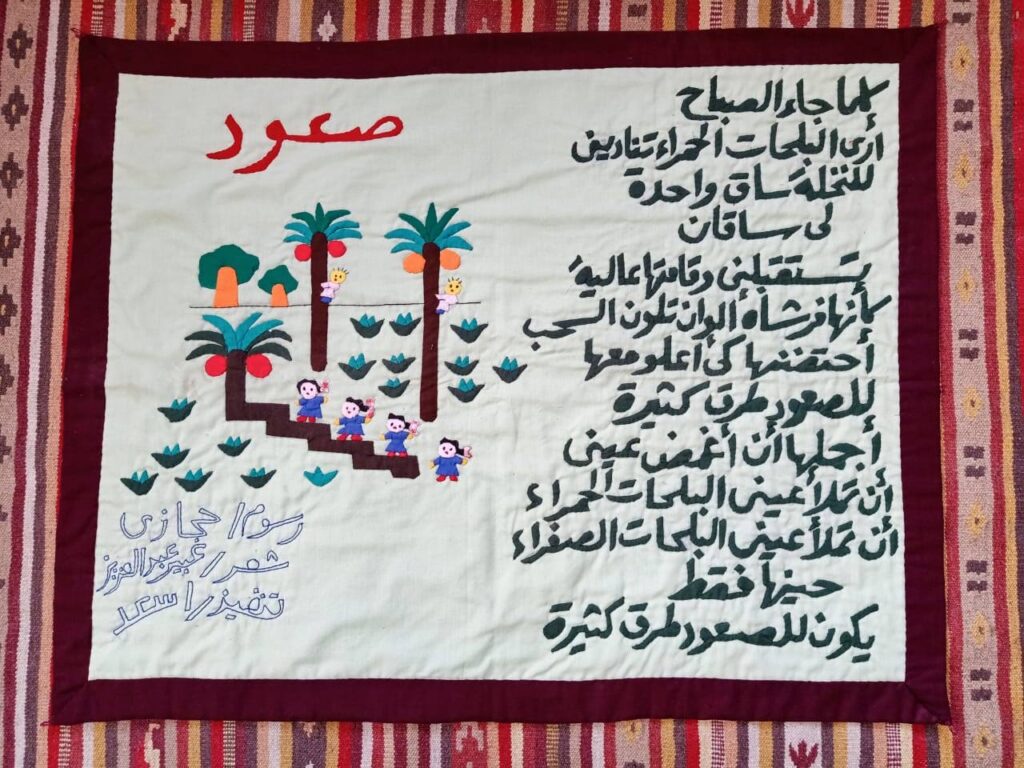 صعود
كلما جاء الصباح
أرى البلحات الحمراء تناديني
للنخلة ساق واحدة
لى ساقان
تستقبلنى وقامتها عالية
كأنها فرشاه ألوان تلون السحب
أحتضنها كى أعلو معها
للصعود طرق كثيرة
أجملها أن أغمض عينى
أن تملأ عينى البلحات الحمراء
أن تملأ عينى البلحات الصفراء
حينها فقط
يكون للصعود طرق كثيرة
رسوم/ حجازى
شعر/ عبير عبد العزيز
تنفيذ/ اسعد